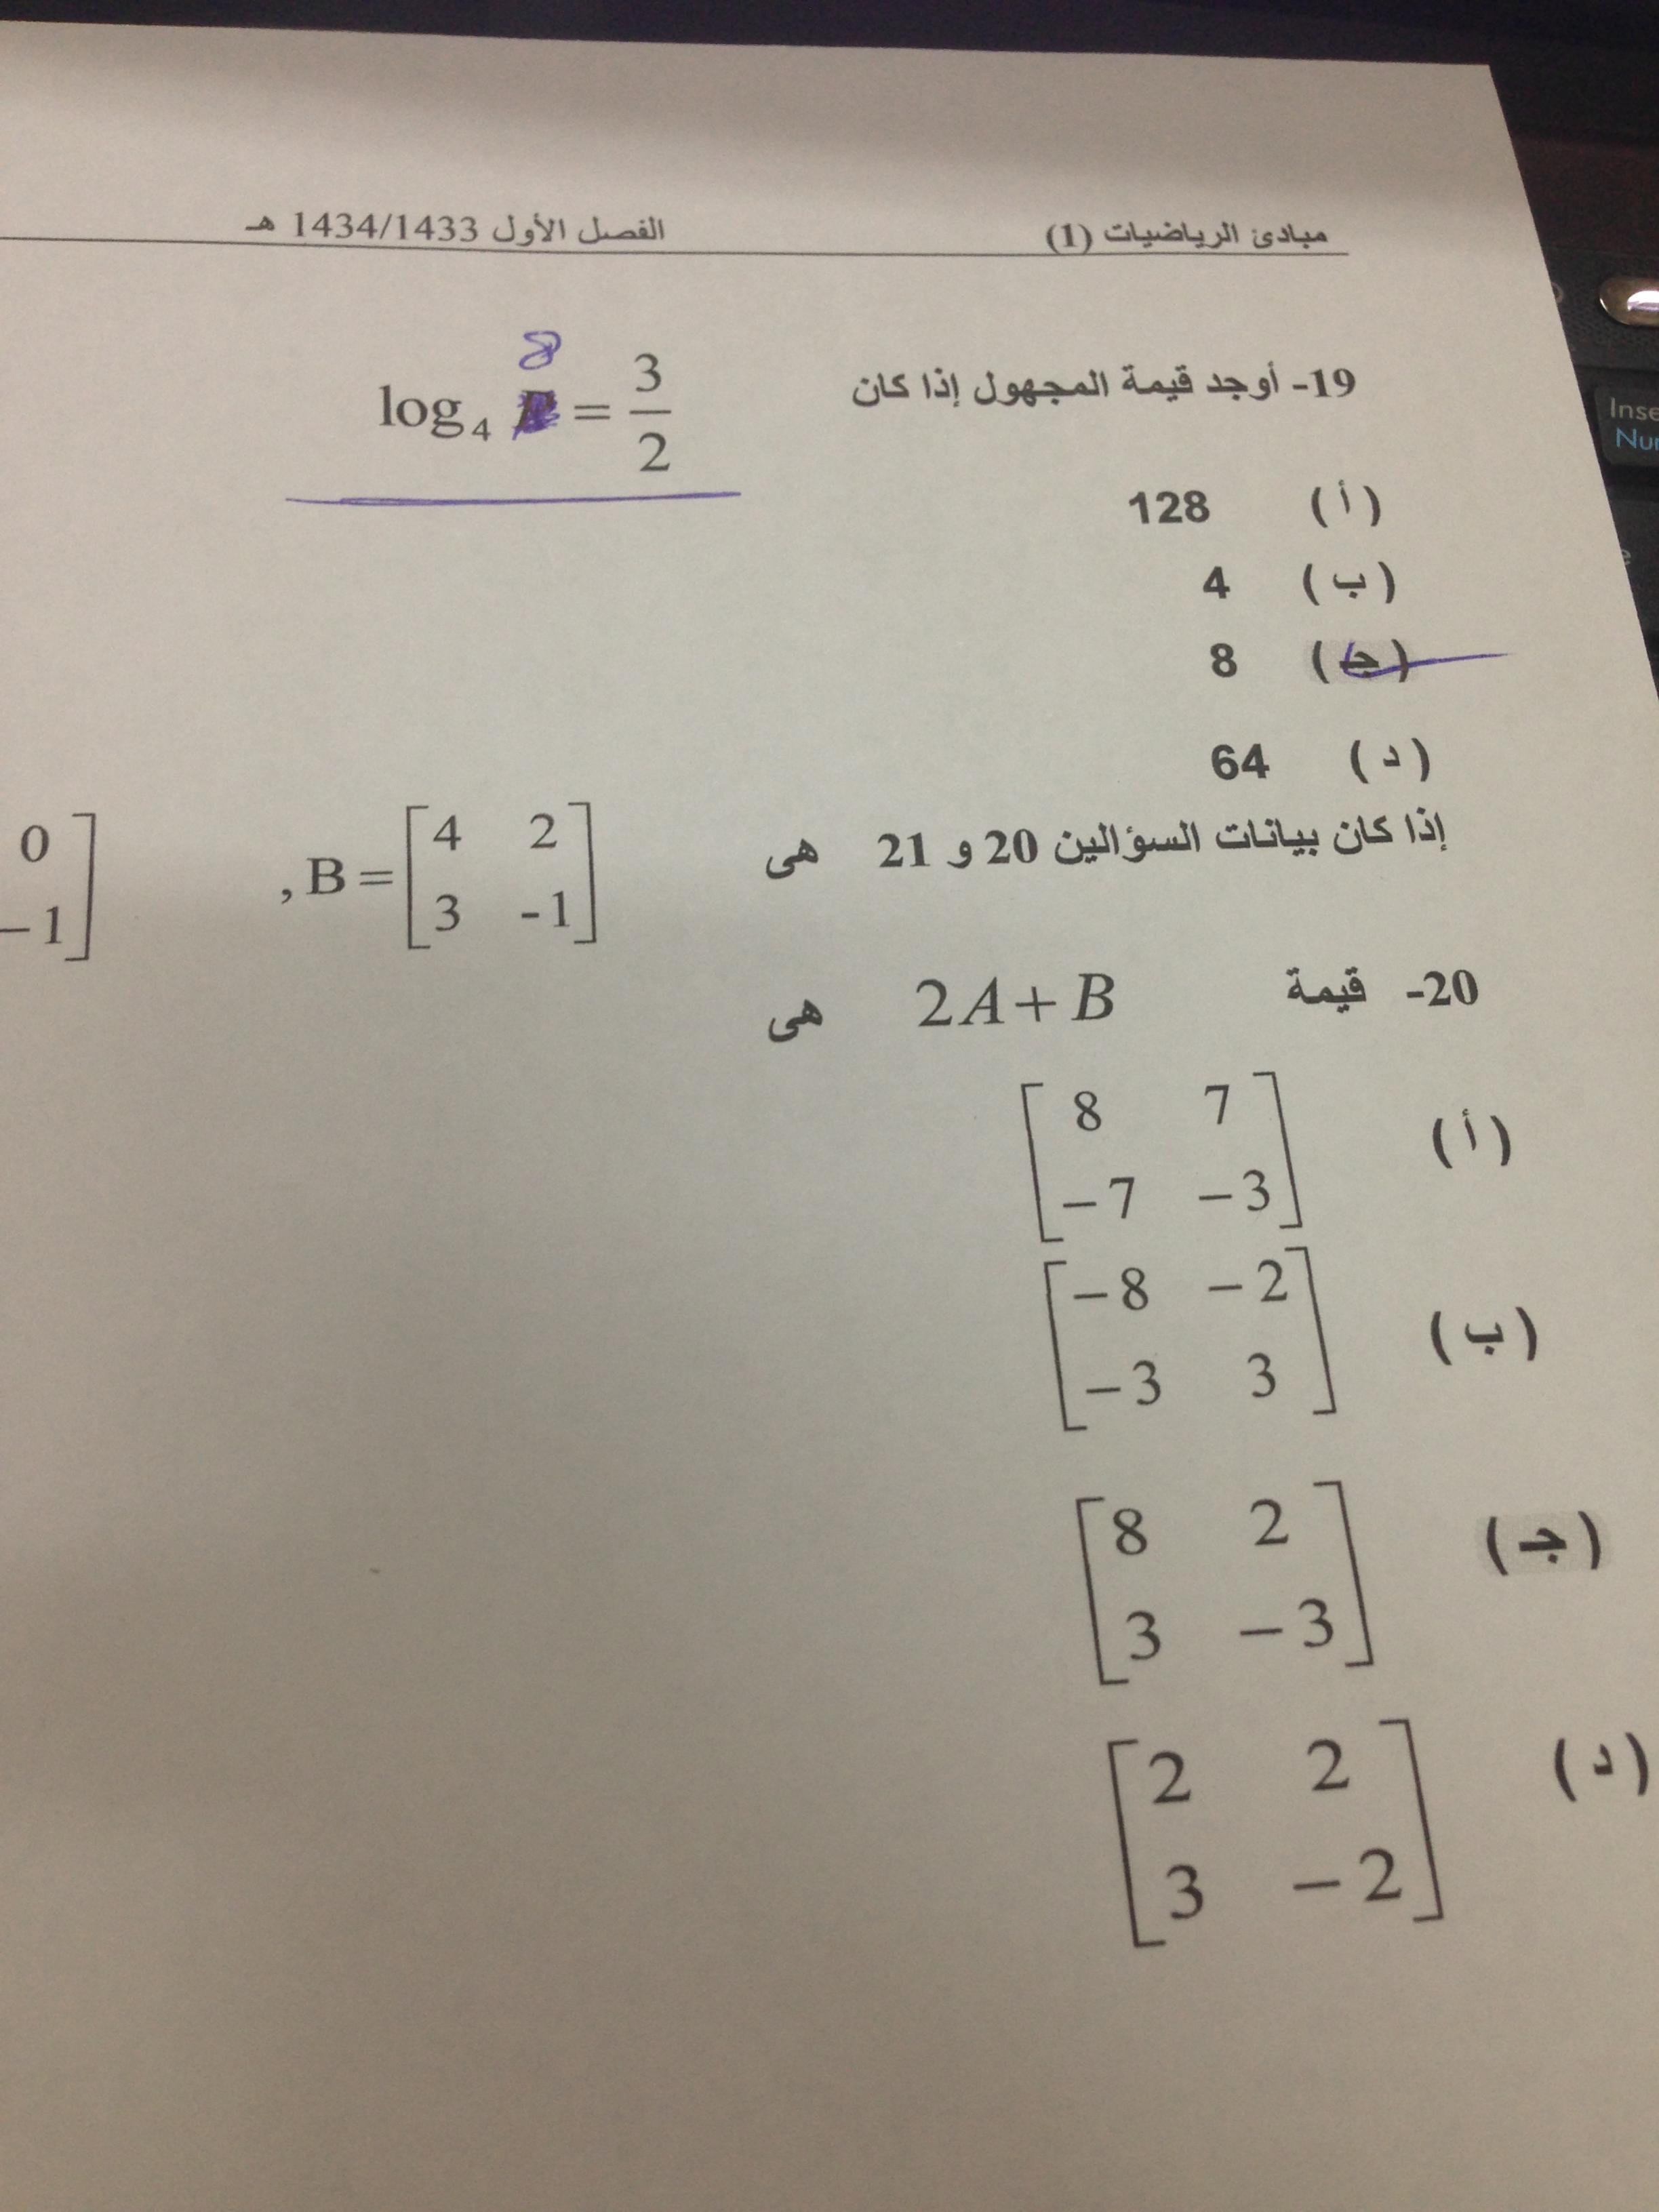 مبادئ الرياضيات (1) الفصل الأول 1434/1433 هـ
19- أوجد قيمة المجهول إذا كان log₄ = 3/2
8
(أ) 128
(ب) 4
(جـ) 8
(د) 64
إذا كان بيانات السؤالين 20 و 21 هى
, B = [4 2
3 -1]
0
−1]
20- قيمة 2A+B هى
(أ) [8 7
−7 −3]
(ب) [−8 −2
−3 3]
(جـ) [8 2
3 −3]
(د) [2 2
3 −2]
Inse
Nu